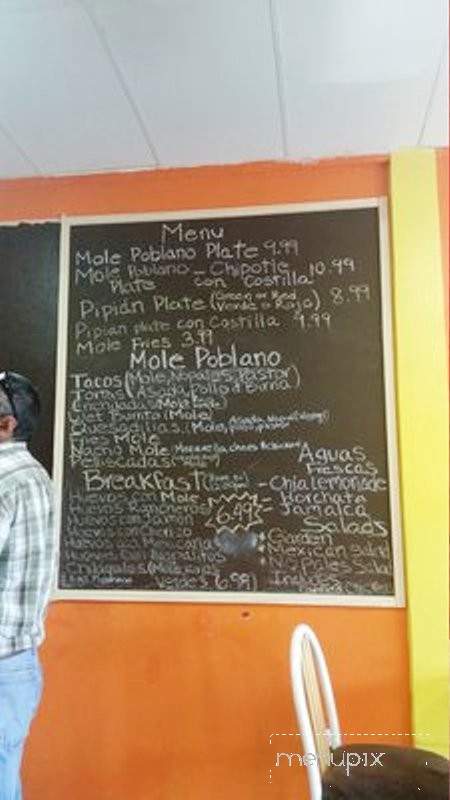 Menu
Mole Poblano Plate 9.99
Mole Poblano - Chipotle 10.99
Plate con Costilla
Pipián Plate (Green or Red 8.99
Verde o Rojo)
Pipian plate con Costilla 9.99
Mole Fries 3.99
Mole Poblano
Tacos (Mole, Nopales, Pastor)
Tortas (Asada, Pollo, Birria)
(Mole
(Mole)
Quesadillas (Mole,
Fries Mole
Nacho Mole
Peliscadas
Aguas
Frescas
- Chia lemonade
- Horchata
- Jamaica
Breakfast
Huevos con Mole
Huevos Rancheros
Huevos con Jamon
6.99
Huevos con
Huevos
Huevos
Chilaquiles (Mole, rojos
Verdes 6.99)
Salads
Garden
Mexican Salad
Nopales Salad
Includes
menupix